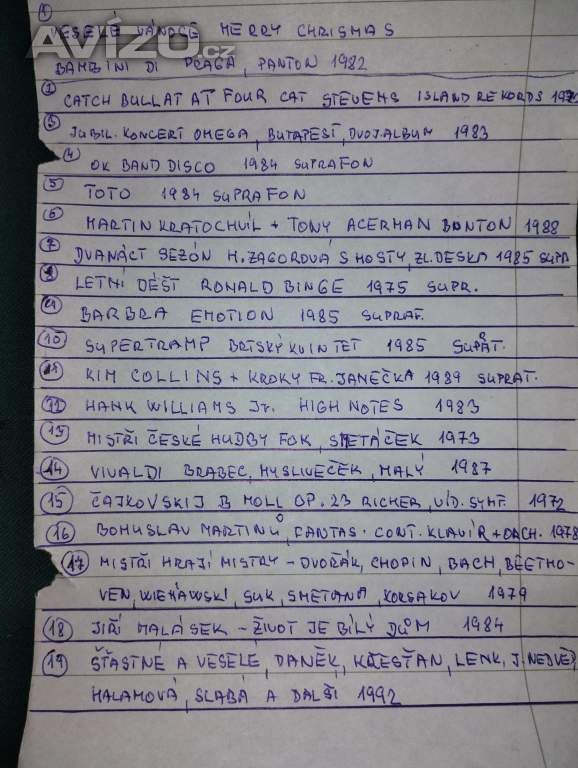 Avízo.cz
① VESELÉ VÁNOCE MERRY CHRISMAS
BAMBINI DI PRAGA, PANTON 1982
② CATCH BULLAT AT FOUR CAT STEVEMS ISLAND REKORDS
③ JUBIL. KONCERT OMEGA, BUTAPEŠT, DVOJ.ALBUM 1983
④ OK BAND DISCO 1984 SUPRAFON
⑤ TOTO 1984 SUPRAFON
⑥ MARTIN KRATOCHVÍL + TONY ACERMAN BONTON 1988
⑦ DVANÁCT SEZÓN H. ZAGOROVÁ S HOSTY, ZL. DESKA 1985 SUPR
⑧ LETNÍ DÉŠŤ RONALD BINGE 1975 SUPR.
⑨ BARBRA EMOTION 1985 SUPRAF.
⑩ SUPERTRAMP BRTSKÝ KVINTET 1985
⑪ KIM COLLINS + KROKY FR. JANEČKA 1989 SUPRAF.
⑫ HANK WILLIAMS Jr. HIGH NOTES 1983
⑬ MISTŘI ČESKÉ HUDBY FOK, SMETÁČEK 1973
⑭ VIVALDI BRABEC, MYSLIVEČEK, MALÝ 1987
⑮ ČAJKOVSKIJ B MOLL OP. 23 RICHER, VÍD. SYMF. 1972
⑯ BOHUSLAV MARTINŮ, FANTAS. CONT. KLAVÍR + ORCH. 1978
⑰ MISTŘI HRAJÍ MISTRY - DVOŘÁK, CHOPIN, BACH, BEETHO-
VEN, WIEŇAWSKI, SUK, SMETANA, KORSAKOV 1979
⑱ JIŘÍ MALÁSEK - ŽIVOT JE BÍLÝ DŮM 1984
⑲ ŠŤASTNÉ A VESELÉ, DANĚK, KŘESŤAN, LENK, J. NEDVĚD,
MALAMOVÁ, SLABÁ A DALŠÍ 1992